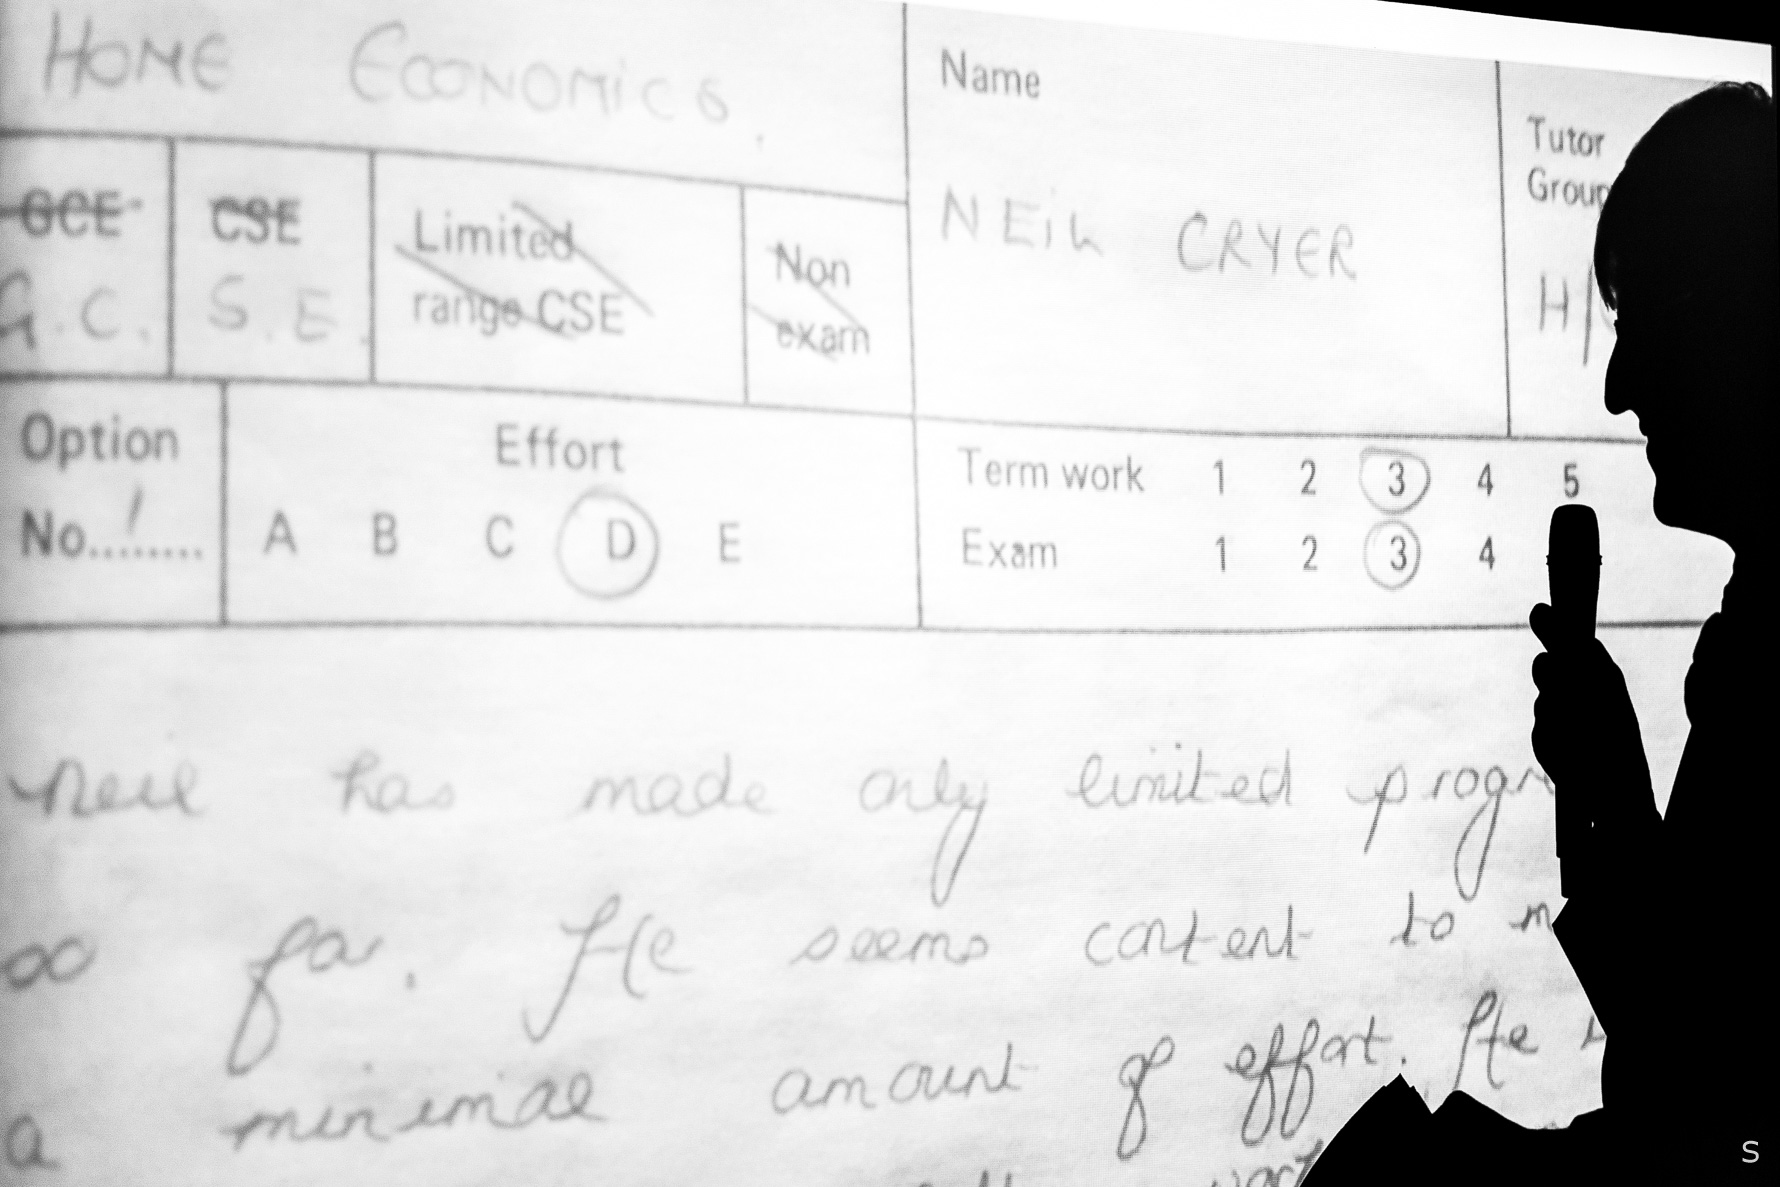 HOME ECONOMICS.
Name
NEIL CRYER
Tutor
Group
H/
GCE
CSE
Limited
range CSE
Non
exam
G.C.S.E.
Option
No.........
1
Effort
A B C D E
Term work 1 2 3 4 5
Exam 1 2 3 4
Neil has made only limited progr
so far. He seems content to m
a minimal amount of effort. He
S